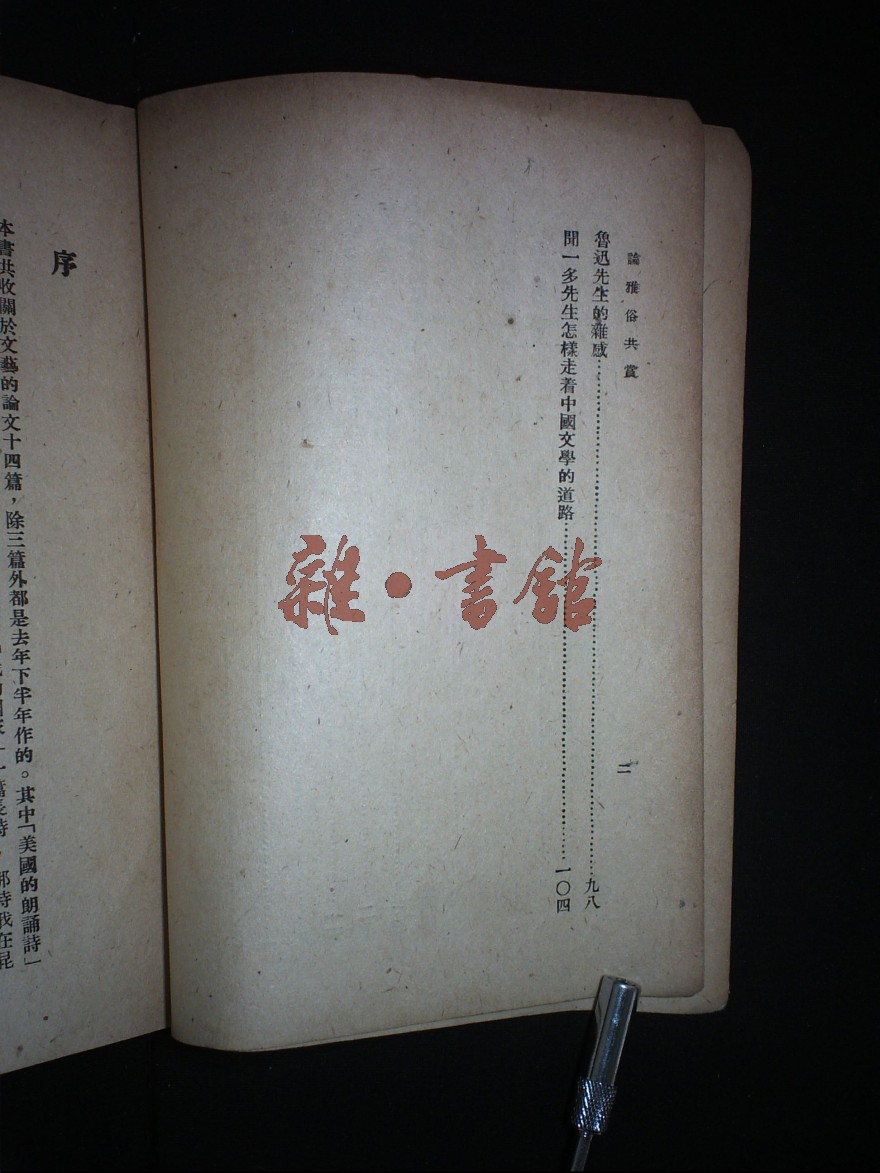 論雅俗共賞
二
魯迅先生的雜感……九八
聞一多先生怎樣走着中國文學的道路……一〇四
雜·書館
序
本書共收關於文藝的論文十四篇，除三篇外都是去年下半年作的。其中「美國的朗誦詩」
一篇長詩，那時我在昆